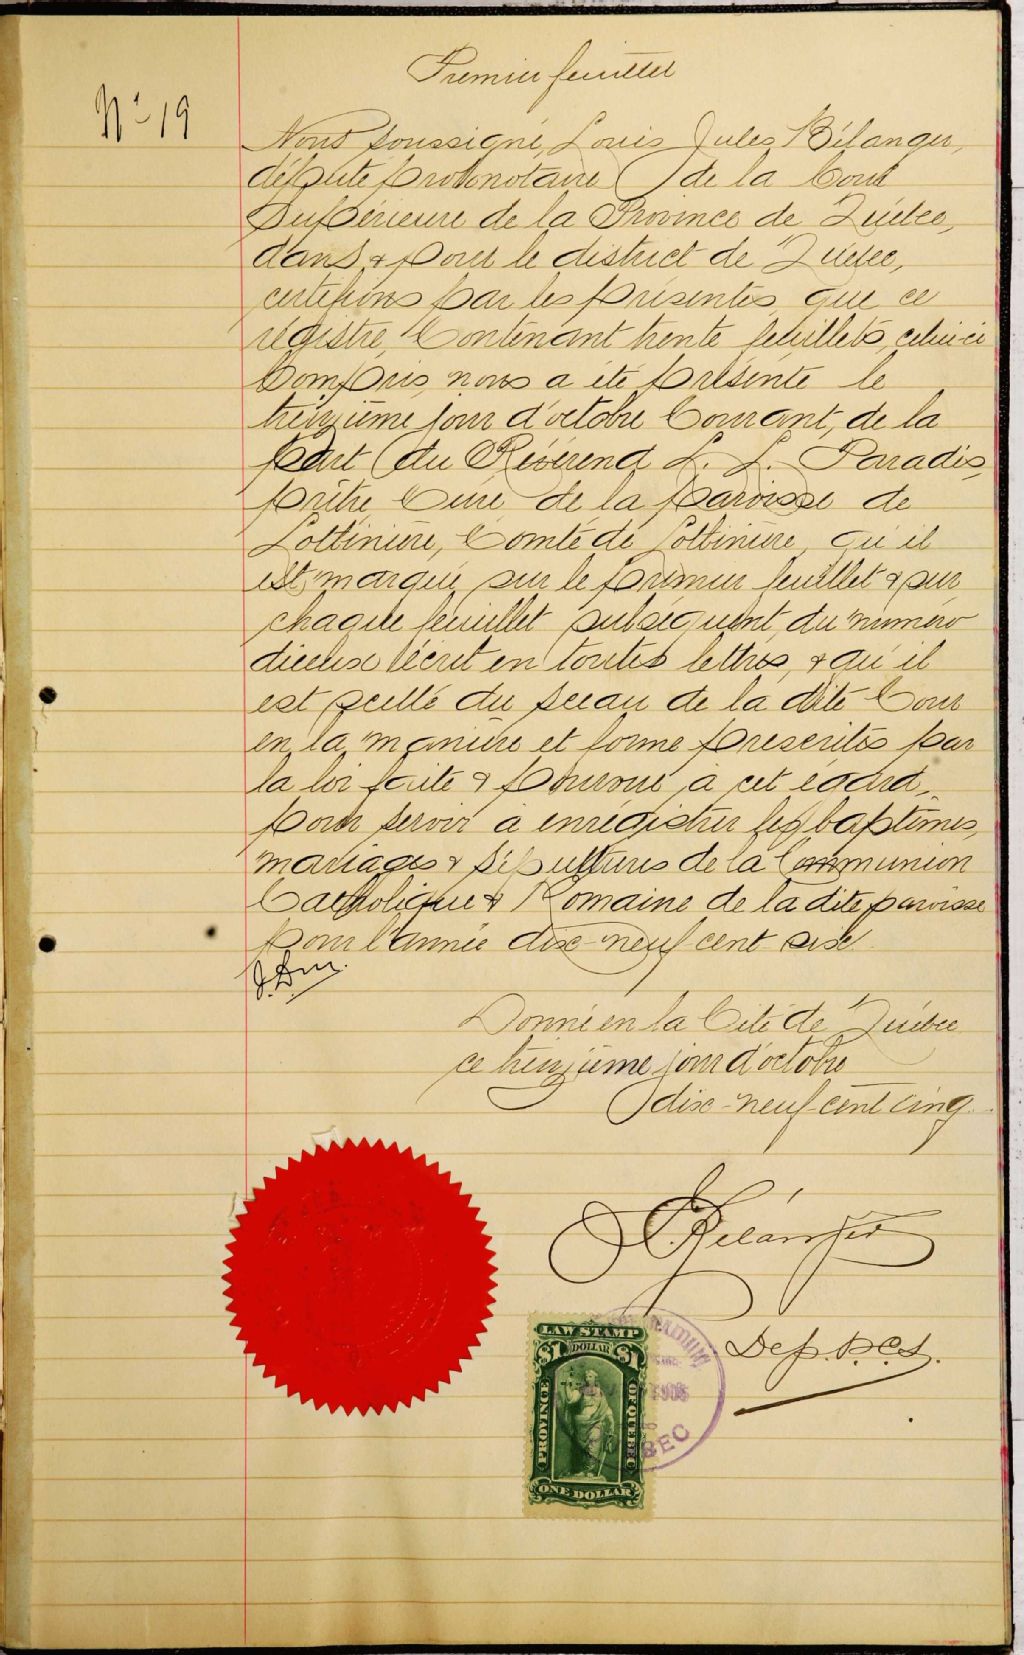 Premier feuillet
No 19
Nous soussigné, Louis Jules Bélanger,
député protonotaire de la Cour
Supérieure de la Province de Québec,
dans & pour le district de Québec,
certifions par les présentes, que ce
régistre, Contenant trente feuillets, celui-ci
Compris, nous a été présenté le
treizième jour d'octobre Courant, de la
part du Révérend L. L. Paradis,
prêtre, Curé de la paroisse de
Lotbinière, Comté de Lotbinière, qu'il
est marqué sur le premier feuillet & sur
chaque feuillet subséquent, du numéro
d'iceux écrit en toutes lettres, & qu'il
est scellé du sceau de la dite Cour
en la manière et forme prescrites par
la loi faite & pourvue à cet égard,
pour servir à enrégistrer les baptêmes,
mariages & sépultures de la Communion
Catholique & Romaine de la dite paroisse
pour l'année dix-neuf cent six.
Donné en la Cité de Québec
ce treizième jour d'octobre
dix-neuf-cent cinq.
Bélanger
Dep. P.C.S.
LAW STAMP
$1 DOLLAR $1
PROVINCE
OF QUEBEC
ONE DOLLAR